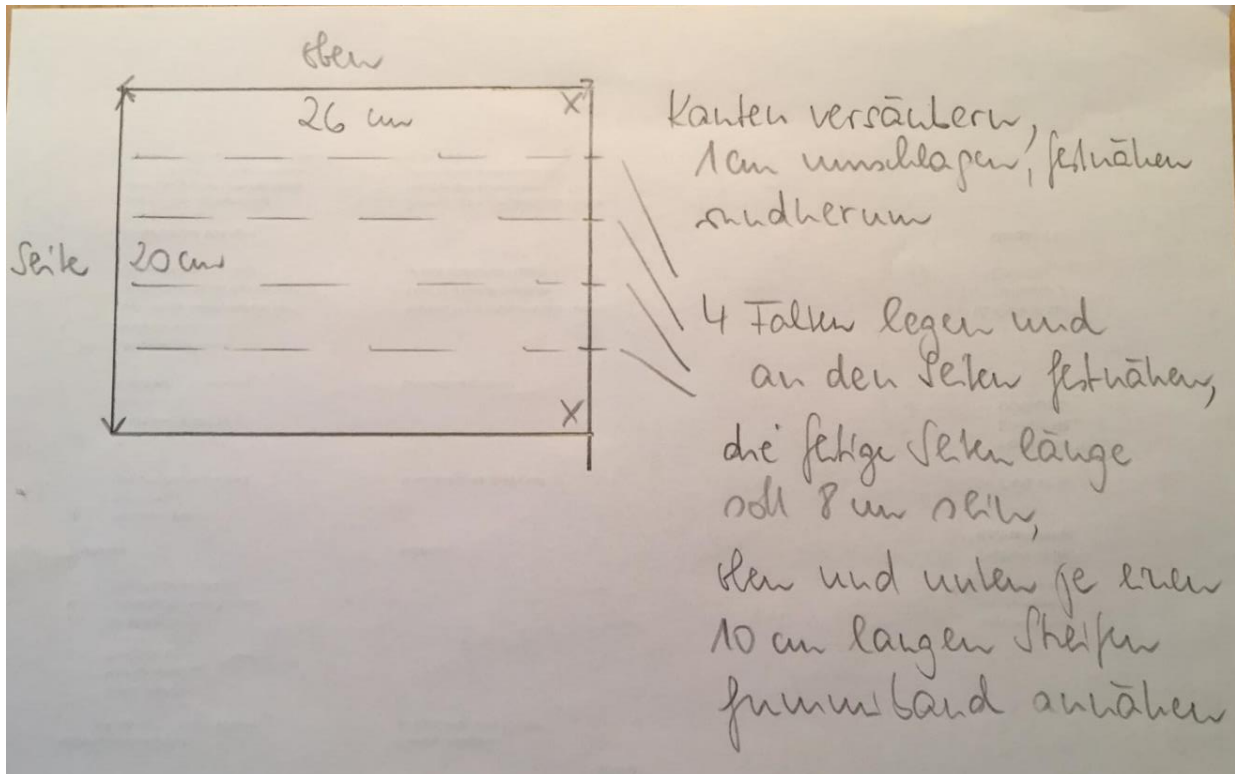 oben
26 cm
x
Seite
20 cm
x
Kanten versäubern,
1 cm umschlagen, festnähen
rundherum
4 Falten legen und
an den Seiten festnähen,
die fertige Seitenlänge
soll 8 cm sein,
oben und unten je einen
10 cm langen Streifen
Gummiband annähen